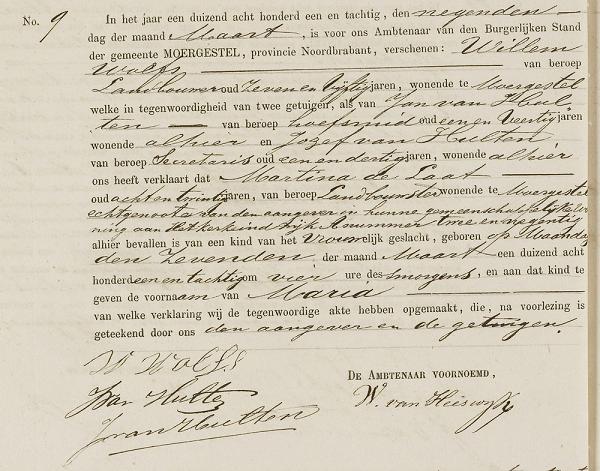 No. 9
In het jaar een duizend acht honderd een en tachtig, den negenden
dag der maand Maart, is voor ons Ambtenaar van den Burgerlijken Stand
der gemeente MOERGESTEL, provincie Noordbrabant, verschenen: Willem
Wolfs van beroep
Landbouwer oud Zeven en Vijftig jaren, wonende te Moergestel
welke in tegenwoordigheid van twee getuigen, als van Jan van Hul-
ten van beroep hoefsmid oud een en Veertig jaren
wonende alhier en Jozef van Hulten
van beroep Secretaris oud een en dertig jaren, wonende alhier
ons heeft verklaart dat Martina de Laat
oud acht en twintig jaren, van beroep Landbouwster wonende te Moergestel
echtgenoote van den aangever en hunne gemeenschappelijke wo-
ning aan Het kerkeind wijk A nummer twee en negentig
alhier bevallen is van een kind van het Vrouwelijk geslacht, geboren op Maandag
den Zevenden der maand Maart een duizend acht
honderd een en tachtig om vier ure des smorgens, en aan dat kind te
geven de voornaam van Maria
van welke verklaring wij de tegenwoordige akte hebben opgemaakt, die, na voorlezing is
geteekend door ons den aangever en de getuigen.
W Wolfs
DE AMBTENAAR VOORNOEMD,
J van Hulten
W. van Heiswijk
J van Hulten